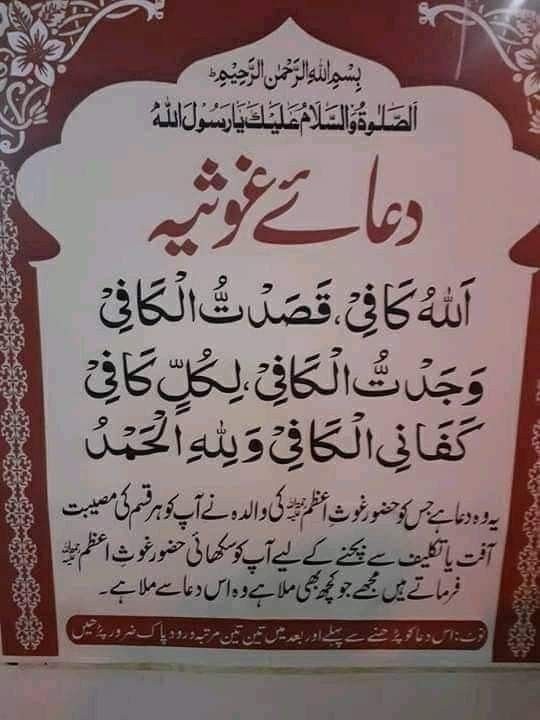 بِسْمِ اللهِ الرَّحْمٰنِ الرَّحِيْمِ ط
اَلصَّلٰوةُ وَالسَّلَامُ عَلَيْكَ يَا رَسُوْلَ اللهْ
دعائے غوثیہ
اَللهُ كَافِيْ، قَصَدْتُّ الْكَافِيْ
وَجَدْتُّ الْكَافِيْ، لِكُلٍّ كَافِيْ
كَفَانِي الْكَافِيْ وَلِلّٰهِ الْحَمْدُ
یہ وہ دعا ہے جس کو حضور غوثِ اعظم کی والدہ نے آپ کو ہر قسم کی مصیبت
آفت یا تکلیف سے بچنے کے لیے آپ کو سکھائی حضور غوثِ اعظم
فرماتے ہیں مجھے جو کچھ بھی ملا ہے وہ اس دعا سے ملا ہے۔
نوٹ: اس دعا کو پڑھنے سے پہلے اور بعد میں تین تین مرتبہ درود پاک ضرور پڑھیں